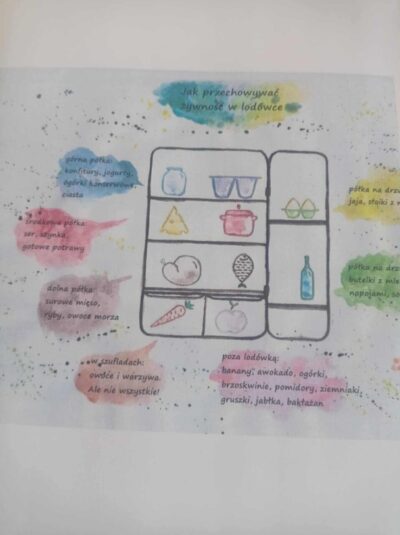 Jak przechowywać
żywność w lodówce
górna półka:
konfitury, jogurty,
ogórki konserwowe,
ciasta
środkowa półka:
ser, szynka,
gotowe potrawy
dolna półka:
surowe mięso,
ryby, owoce morza
w szufladach:
owoce i warzywa.
Ale nie wszystkie!
półka na
jaja, słoiki z
półka na
butelki z
napojami,
poza lodówką:
banany, awokado, ogórki,
brzoskwinie, pomidory, ziemniaki,
gruszki, jabłka, bakłażan